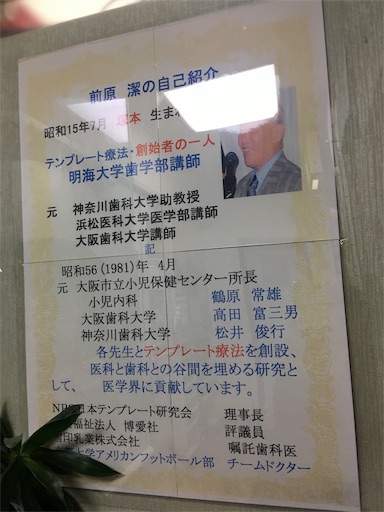 前原 潔の自己紹介
昭和15年7月 塚本 生まれ
テンプレート療法・創始者の一人
明海大学歯学部講師
元 神奈川歯科大学助教授
浜松医科大学医学部講師
大阪歯科大学講師
記
昭和56(1981)年 4月
元 大阪市立小児保健センター所長
小児内科 鶴原 常雄
大阪歯科大学 高田 富三男
神奈川歯科大学 松井 俊行
各先生とテンプレート療法を創設、
医科と歯科との谷間を埋める研究と
して、 医学界に貢献しています。
日本テンプレート研究会 理事長
福祉法人 博愛社 評議員
印乳業株式会社 嘱託歯科医
大学アメリカンフットボール部 チームドクター